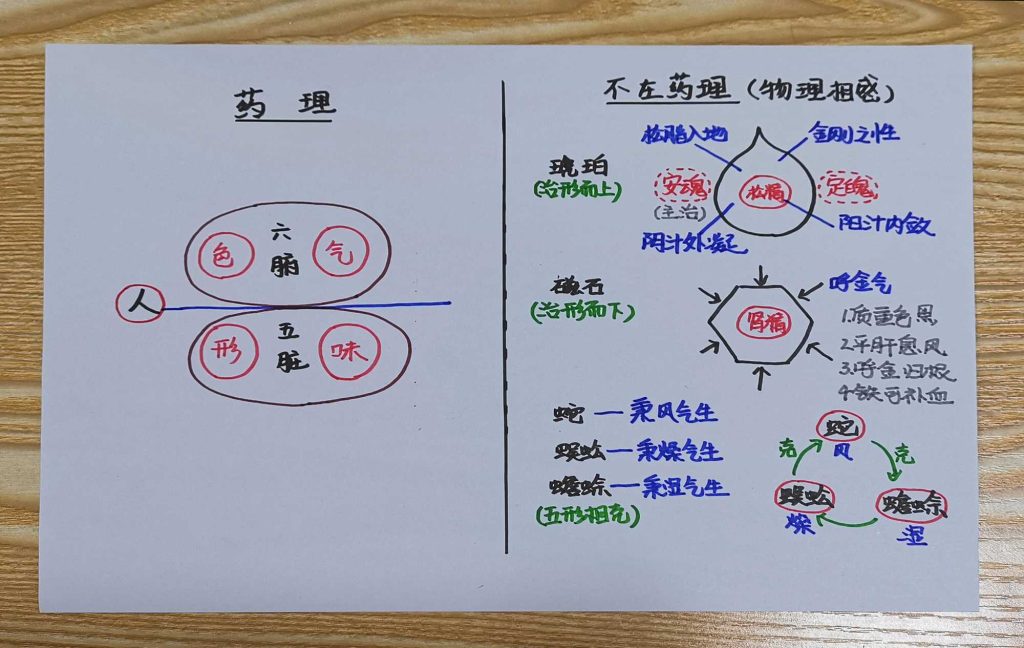 药 理
六
腑
色
气
人
五
脏
形
味
不在药理(物理相感)
松脂入地
金刚之性
琥珀
(治形而上)
安魂
(主治)
松脂
定魄
阴汁外凝
阳汁内敛
磁石
(治形而下)
肾脂
吸金气
1.质重色黑
2.平肝息风
3.吸金归根
4.铁可补血
蛇—秉风气生
蜈蚣—秉燥气生
蟾蜍—秉湿气生
(五形相克)
蛇
风
克
克
蜈蚣
燥
蟾蜍
湿